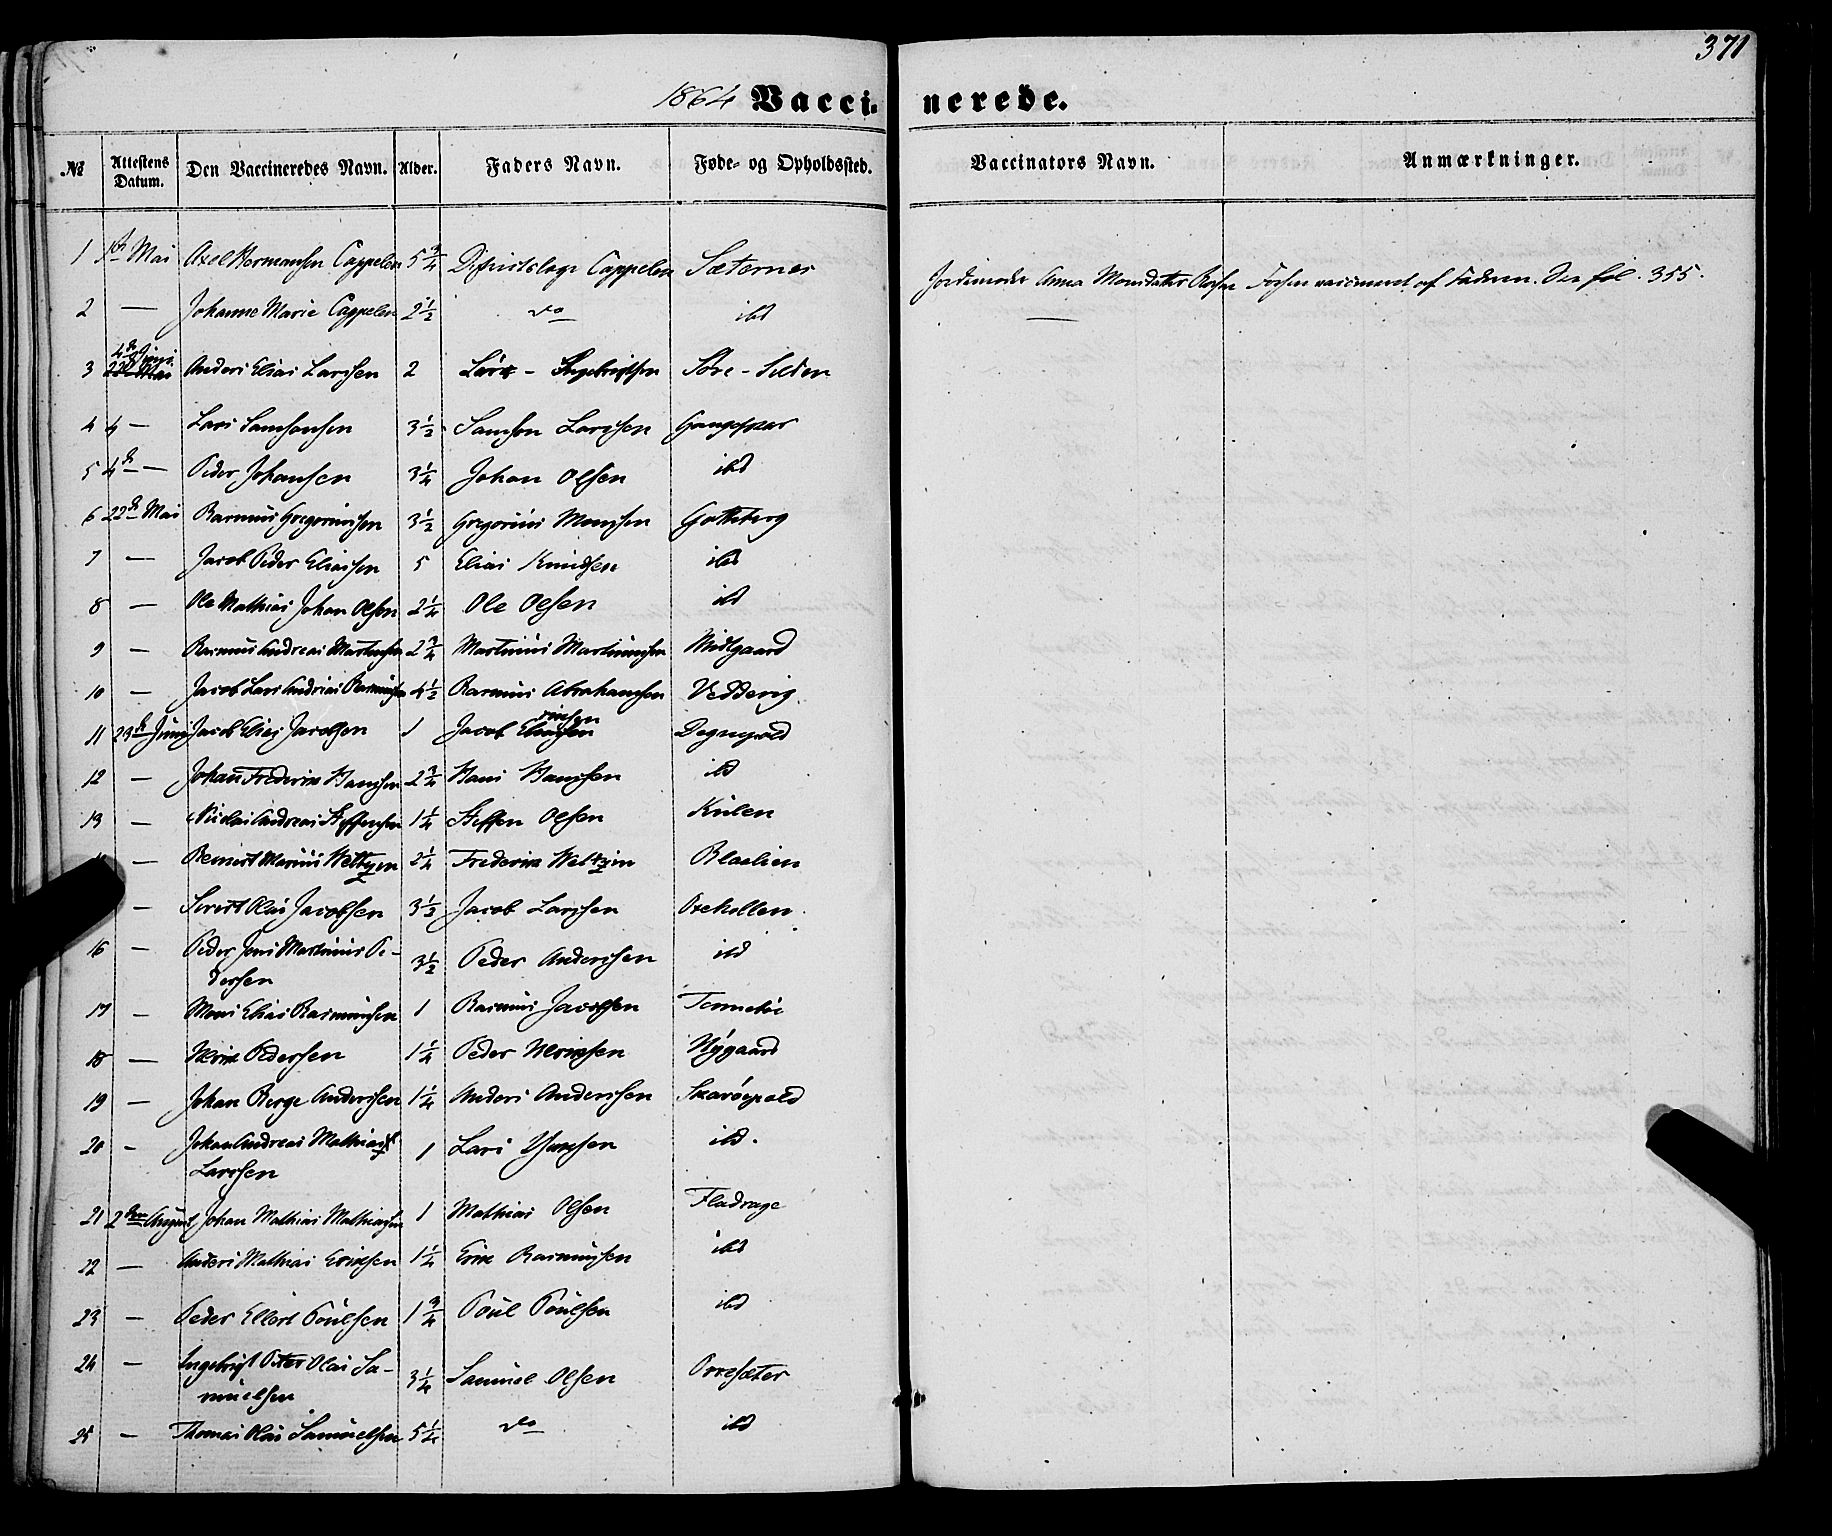 371
1864 Vaccinerede.
№ Attestens Datum. Den Vaccineredes Navn. Alder. Faders Navn. Føde- og Opholdssted. Vaccinators Navn. Anmærkninger.
1 Mai Axel Hermansen Cappelen 5 3/4 Districtslæge Cappelen Sæternes Jordemoder Anna Monsdatter Forhen vaccineret af Faderen. See fol. 355.
2 — Johanne Marie Cappelen 2 1/2 do ibd —
3 4de Juni 22de Mai Anders Elias Larssen 2 Lars Ingebrigtsen Søre-Selden
4 4 — Lars Samsonsen 3 1/2 Samson Larssen
5 4de — Peder Johansen 3 1/4 Johan Olsen ibd
6 22de Mai Rasmus Gregoriussen 3 1/2 Gregorius Monssen Gotteberg
7 — Jacob Peder Eliassen 5 Elias Knudsen ibd
8 — Ole Mathias Johan Olsen 2 1/4 Ole Olsen ibd
9 — Rasmus Andreas Martinusen 2 3/4 Martinus Martinussen Midtgaard
10 — Jacob Lars Andreas Rasmussen 4 1/2 Rasmus Abrahamsen Vedderig
11 23de Juni Jacob Elias Jacobsen 1 Jacob Degnepold
12 — Johan Frederik Hanssen 2 3/4 Hans Hanssen ibd
13 — Nicolai Andreas Steffensen 1 1/4 Steffen Olsen Kulen
— Bernert Marius Weltzien 2 1/4 Frederik Weltzin Blaalien
— Sivert Olai Jacobsen 3 1/2 Jacob Larssen Oxekollen.
16 — Peder Jens Martinus Pe-
dersen 3 1/2 Peder Anderssen ibd
17 — Mons Elias Rasmussen 1 Rasmus Jacobsen
18 — Ulrik Pedersen 1 1/4 Peder Ulriksen Nÿgaard
19 — Johan Berge Anderssen 1 1/4 Anders Anderssen
20 — Johan Andreas Mathias
Larssen 1 Lars ibd.
21 2den August Johan Mathias Mathiassen 1 Mathias Olsen Fladrage
22 — Anders Mathias Eriksen 1 1/4 Erik Rasmussen ibd
23 — Peder Ellert Poulsen 1 3/4 Poul Poulsen ibd
24 — Ingebrigt Peter Olai Sa-
muelsen 3 1/4 Samuel Olsen Orresæter
25 — Thomas Olai Samuelsen 5 1/4 do ibd